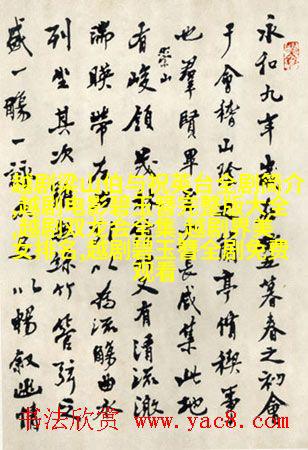 永和九年暮春之初會
于會稽山亭脩稧事
也羣賢畢長咸集此地
有崇山峻領茂又有清流激
湍暎帶左以為流觴曲水
列坐其次竹管弦之
盛一觴一詠以暢敘幽情
越剧梁山伯与祝英台全剧简介
,越剧电影碧玉簪完整版大全
越剧全集,越剧界美
女排名,越剧碧玉簪全剧免费
观看
书法欣赏 www.yac8.com